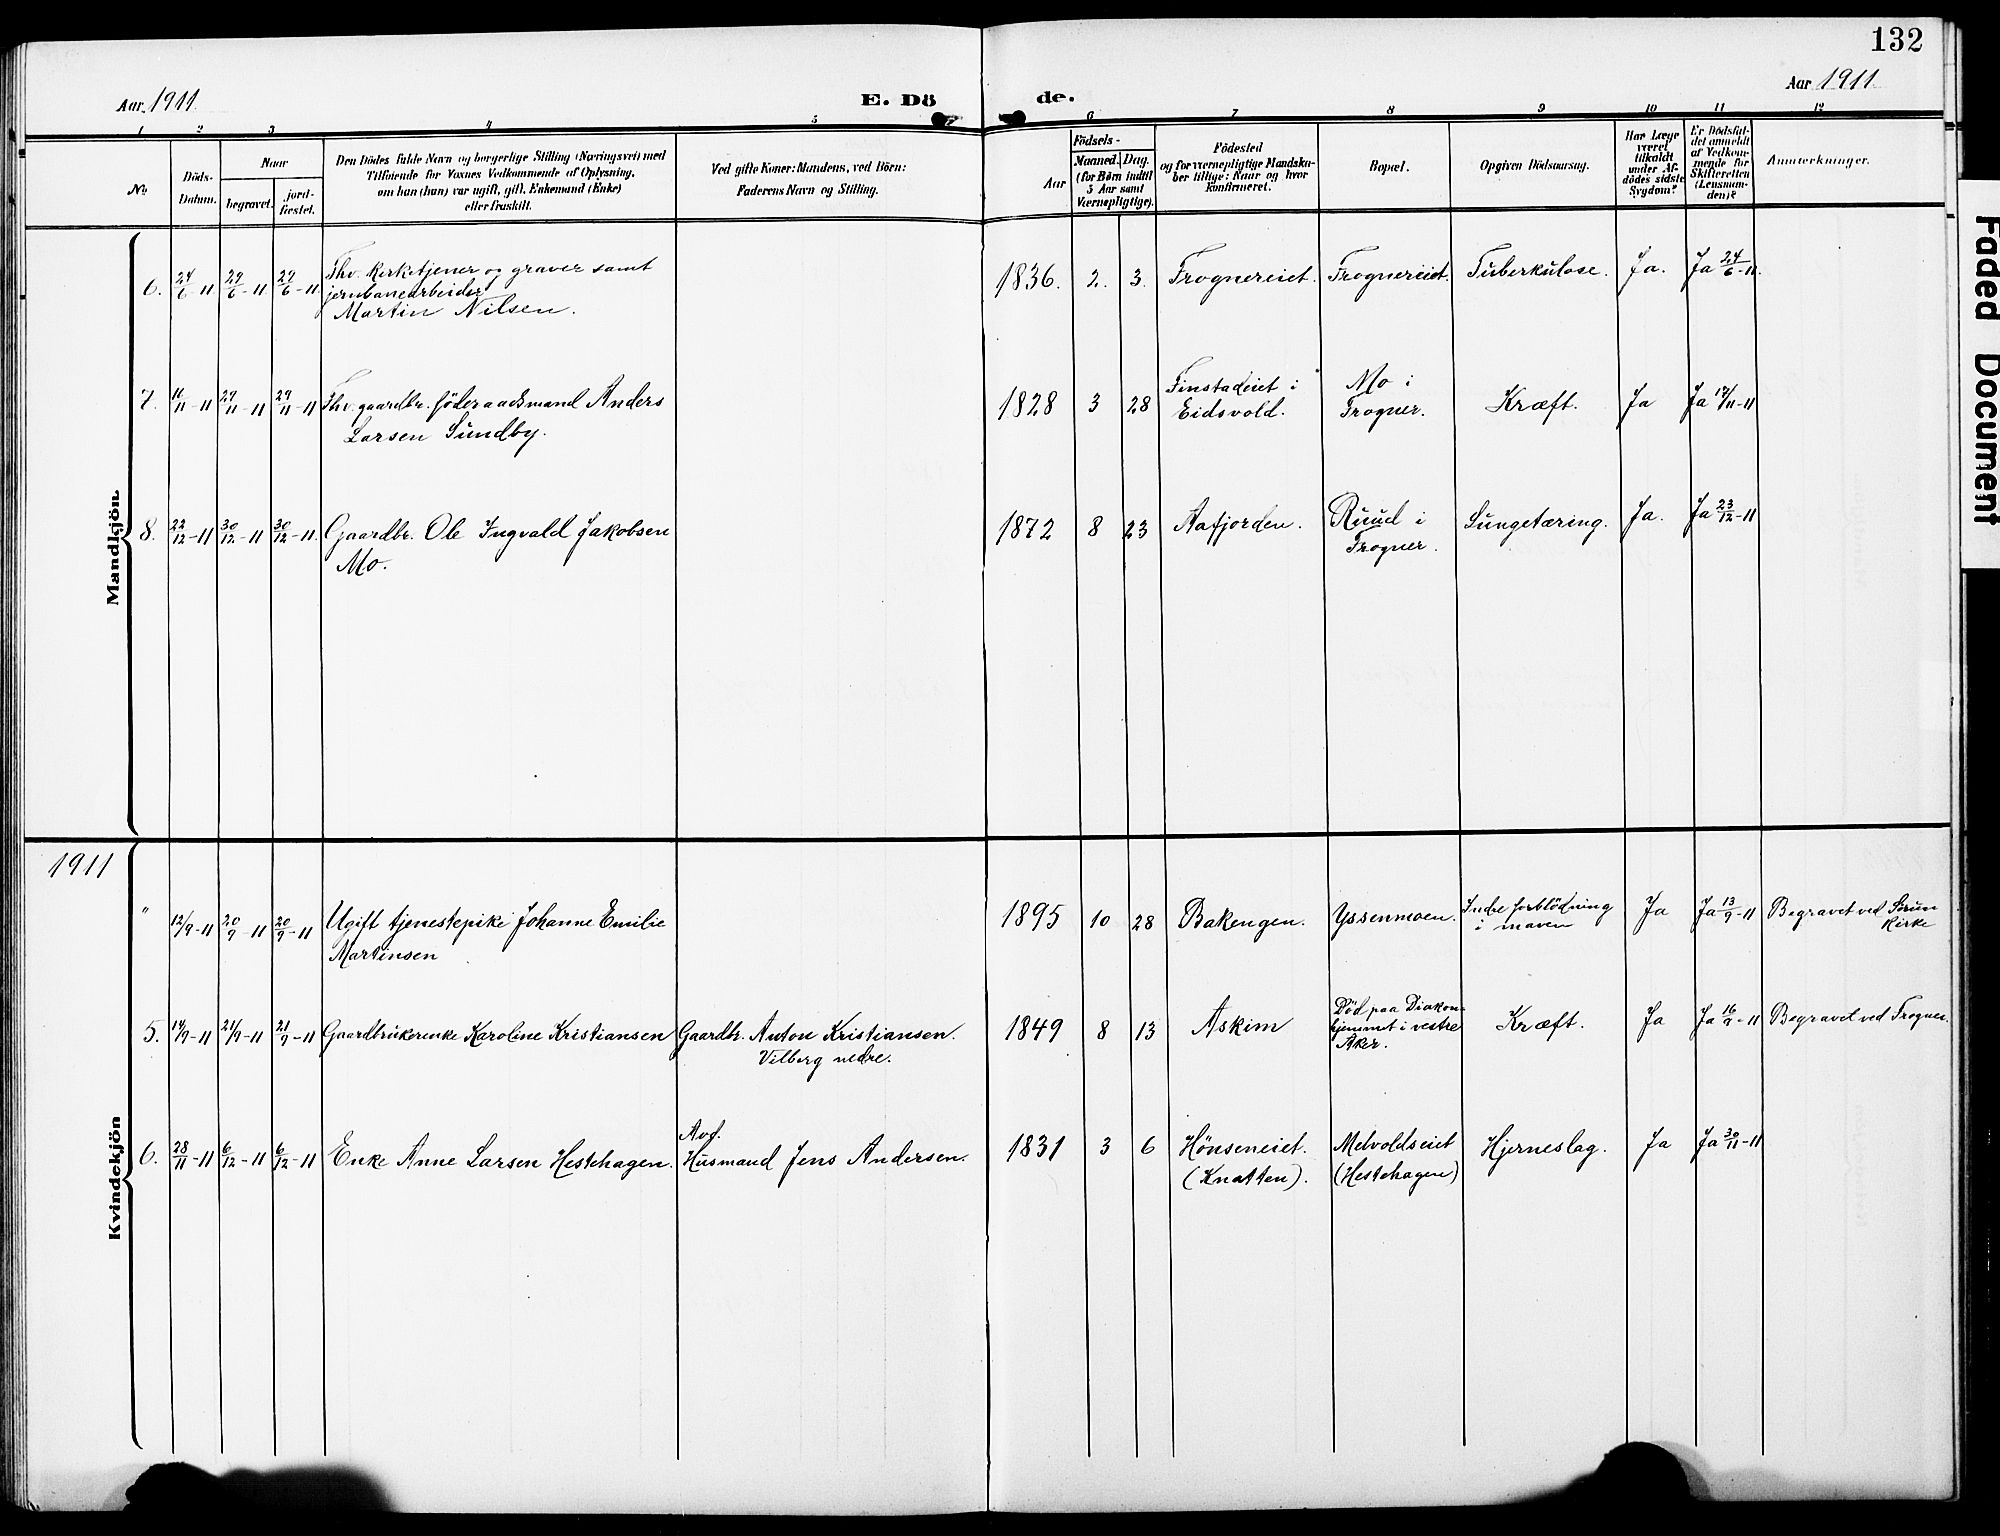 132
Aar 1911
E. Dö
de.
Aar 1911
1 2 3 4 5 6 7 8 9 10 11 12
No
Döds-
Datum.
Naar
begravet.
jord-
fæstet.
Den Dödes fulde Navn og borgerlige Stilling (Næringsvei) med
Tilføiende for Voxnes Vedkommende af Oplysning,
om han (hun) var ugift, gift, Enkemand (Enke)
eller fraskilt.
Ved gifte Koner: Mandens, ved Börn:
Faderens Navn og Stilling.
Födsels-
Aar
Maaned. Dag.
(for Børn indtil
5 Aar samt
Værnepligtige).
Födested
og for værnepligtige Mandska-
ber tillige: Naar og hvor
konfirmeret.
Bopæl.
Opgiven Dödsaarsag.
Har Læge
været
tilkaldt
under Af-
dödes sidste
Sygdom?
Er Dödsfal-
det anmeldt
af Vedkom-
mende for
Skifteretten
(Lensman-
den)?
Anmærkninger.
Mandkjön
6. 24/6-11 29/6-11 29/6-11 Fhv. kirketjener og graver samt
jernbanearbeider
Martin Nilsen.
1836. 2. 3. Frognereiet. Frognereiet. Tuberkulose. Ja. Ja 24/6-11.
7. 16/11-11 29/11-11 29/11-11 Fhv. gaardbr. föderaadsmand Anders
Larsen Sundby.
1828 3 28 Finstadeiet i
Eidsvold.
Mo i
Frogner.
Kræft. Ja Ja 17/11-11
8. 22/12-11 30/12-11 30/12-11. Gaardbr. Ole Ingvald Jakobsen
Mo.
1872 8 23 Aafjorden. Ruud i
Frogner.
Lungetæring. Ja. Ja 23/12-11
1911
Kvindekjön
" 12/9-11 20/9-11 20/9-11 Ugift tjenestepike Johanne Emilie
Martinsen
1895 10 28 Bakengen. Yssenmoen. Indre forblödning
i maven
Ja Ja 13/9-11 Begravet ved Sørum
Kirke
5. 14/9-11 21/9-11 21/9-11 Gaardbrukerenke Karoline Kristiansen Gaardbr. Anton Kristiansen.
Vilberg nedre.
1849 8 13 Askim Död paa Diakon-
hjemmet i vestre
Aker.
Kræft. Ja Ja 16/9-11 Begravet ved Frogner.
6. 28/11-11 6/12-11 6/12-11 Enke Anne Larsen Hestehagen. Avf.
Husmand Jens Andersen.
1831 3 6 Hönseneiet.
(Knatten).
Melvoldseiet
(Hestehagen)
Hjerneslag. Ja Ja 30/11-11
Faded Document